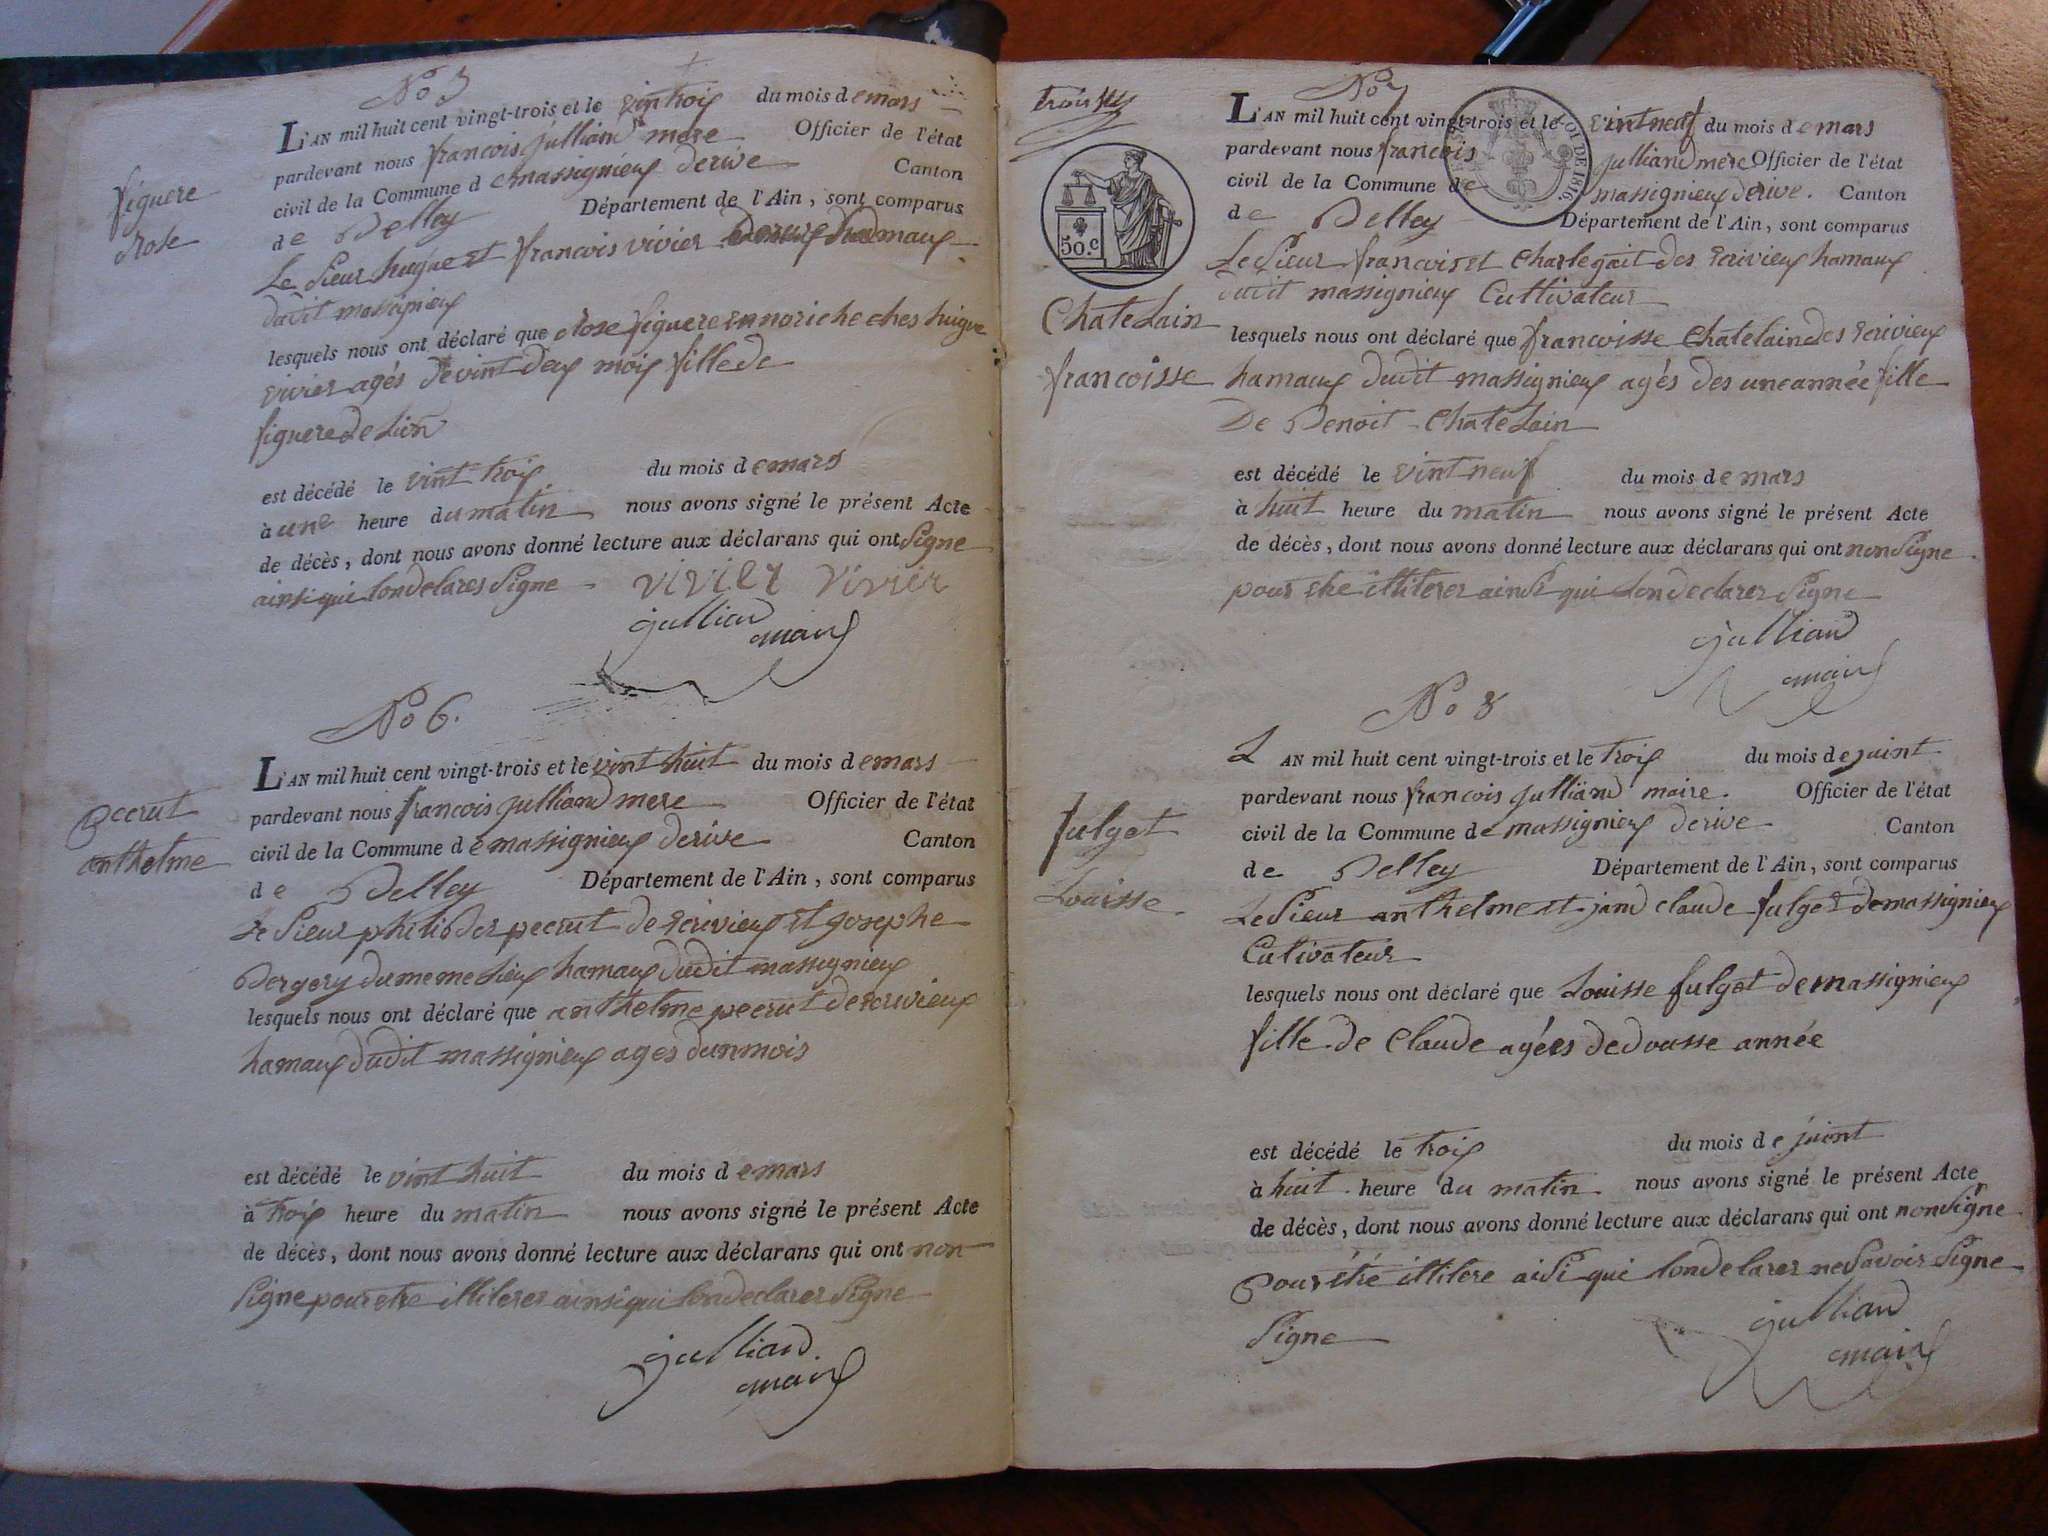 No 5
L'AN mil huit cent vingt-trois et le vintroix du mois de mars
pardevant nous francois julliand mere Officier de l'état
civil de la Commune de massignieux derive Canton
de Belley Département de l'Ain, sont comparus
Le Sieur hugue et francois vivier hamaux
dudit massignieux
lesquels nous ont déclaré que rose figuere ennoriche ches hugue
vivier agés devint deux moix fille de
figuere de Lion
est décédé le vint troix du mois de mars
à une heure du matin nous avons signé le présent Acte
de décès, dont nous avons donné lecture aux déclarans qui ont Signe
ainsi qui londelares Signe vivier vivier
julliand
maire
figuere
rose
No 6.
L'AN mil huit cent vingt-trois et le vint huit du mois de mars
pardevant nous francois julliand mere Officier de l'état
civil de la Commune de massignieux derive Canton
de Belley Département de l'Ain, sont comparus
Le Sieur philiber peccrut de Ecrivieux et Josephe
Bergery du meme Lieux hamaux dudit massignieux
lesquels nous ont déclaré que anthelme peccrut de ecrivieux
hamaux dudit massignieux ages dunmois
est décédé le vint huit du mois de mars
à troix heure du matin nous avons signé le présent Acte
de décès, dont nous avons donné lecture aux déclarans qui ont non
Signe pour etre illiterer ainsi qui londeclarer Signe
julliand
maire
peccrut
anthelme
trois
No 7
L'AN mil huit cent vingt-trois et le vintneuf du mois de mars
pardevant nous francois julliand mere Officier de l'état
civil de la Commune de massignieux derive. Canton
de Belley Département de l'Ain, sont comparus
50.c
LOI DE 1816.
Le Sieur francois et Charle gait des Ecrivieux hamaux
dudit massignieux Cultivateur
lesquels nous ont déclaré que francoisse Chatelain des Ecrivieux
hamaux dudit massignieux agés des une année fille
De Benoit Chatelain
est décédé le vintneuf du mois de mars
à huit heure du matin nous avons signé le présent Acte
de décès, dont nous avons donné lecture aux déclarans qui ont non Signe
pour etre illiterer ainsi qui londeclarer Signe
julliand
maire
Chatelain
francoisse
No 8
L AN mil huit cent vingt-trois et le troix du mois de juint
pardevant nous francois julliand maire. Officier de l'état
civil de la Commune de massignieux derive Canton
de Belley Département de l'Ain, sont comparus
Le Sieur anthelme et jand claude fulget de massignieux
Cultivateur
lesquels nous ont déclaré que Louisse fulget de massignieux
fille de Claude agées de dousse année
est décédé le troix du mois de juint
à huit heure du matin nous avons signé le présent Acte
de décès, dont nous avons donné lecture aux déclarans qui ont non Signe
pour étré illitere aisi qui londelarer ne Savoir Signe
Signe
julliand
maire
fulget
Louisse